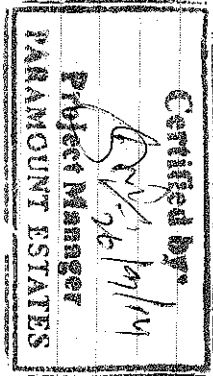 Certified by.
26/9/14
Project Manager
PARAMOUNT ESTATES